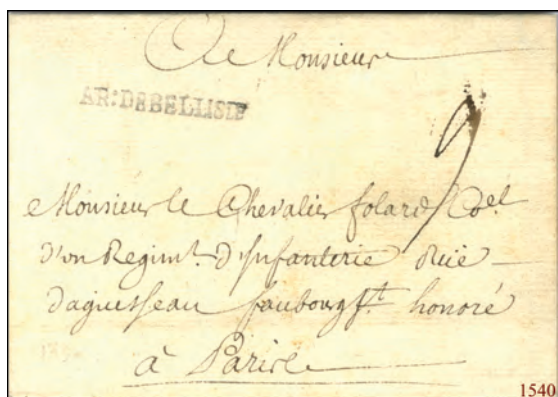 A Monsieur
AR: DEBELLISLE
9
Monsieur le Chevalier folard Coel
d'un Regimt d'Infanterie Ruë
daguesseau faubourg St honoré
à Paris
1540